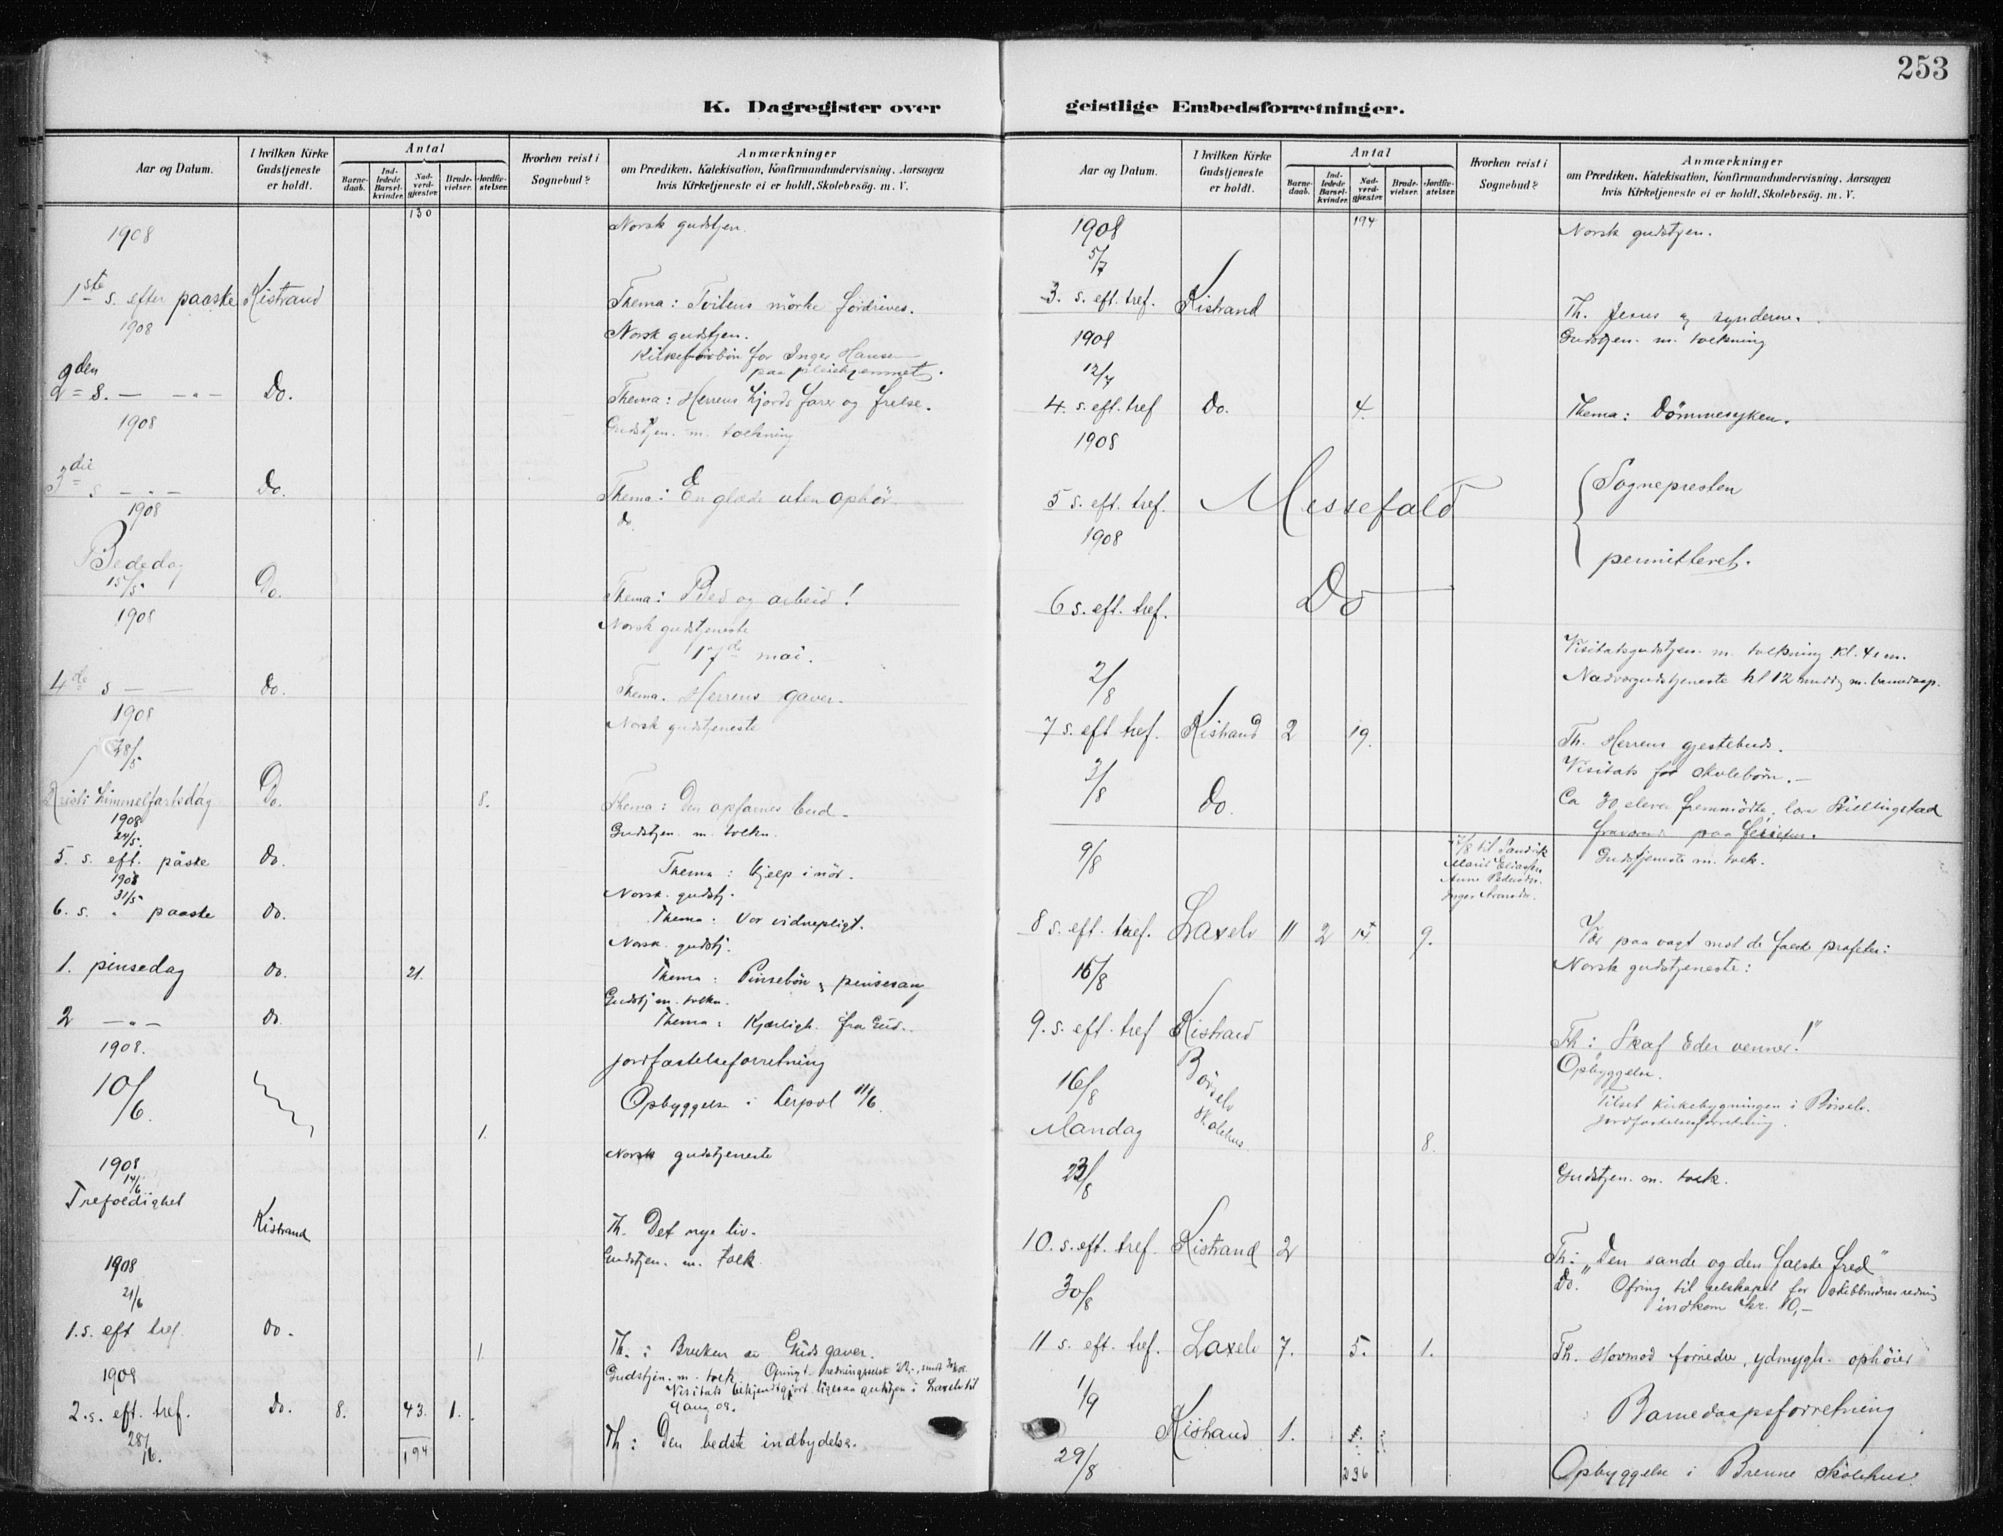 253
K. Dagregister over
geistlige Embedsforretninger.
Aar og Datum.
I hvilken Kirke Gudstjeneste er holdt.
Antal
Barne- daab.
Ind- ledede Barsel- kvinder.
Nad- verd- gjæster.
Brude- vielser.
Jordfæ- stelser.
Hvorhen reist i Sognebud?
Anmærkninger
om Prædiken, Katekisation, Konfirmandundervisning, Aarsagen
hvis Kirketjeneste ei er holdt, Skolebesøg. m. V.
130
1908 Norsk gudstjen.
1ste s. efter paaske Kistrand Thema: Tvilens mörke fordrives.
1908 Norsk gudstjen.
Kirkeforbön for Inger Hansen
paa pleiehjemmet.
2den s. — „ — Do. Thema: Herrens hjords farer og frelse.
1908 Gudstjen. m. tolkning
3die s — „ — Do. Thema: En glæde uten ophör
1908 do
Bededag
15/5 Do. Thema: Bed og arbeid!
1908 Norsk gudstjeneste
17de mai.
4de s — — Do. Thema. Herrens gaver.
1908 Norsk gudstjeneste
28/5
Kristi himmelfartsdag Do. 8. Thema: Den opfarnes bud.
1908 Gudstjen. m. tolkn.
24/5.
5. s. eft. påske Do. Thema: Hjelp i nöd.
1908 Norsk. gudstj.
31/5
6. s. „ paaske Do. Thema: Vor vidnepligt.
Norsk. gudstj.
1. pinsedag Do. 21. Thema: Pinsebön & pinsesang
Gudstj m. tolkn.
2 — „ — Do. Thema: Kjærligh. fra Gud.
1908. Jordfæstelseforretning
10/6. Opbyggelse i Lerpol 11/6.
1.
1908 Norsk gudstjeneste
14/6
Trefoldighet
Kistrand Th. Det nye liv.
1908 Gudstjen. m. tolk
21/6
1. s. eft tref. Do. 1 Th.: Bruken av Guds gaver.
1908 Gudstjen. m. tolk Ofringt. redningsselsk
Visitats bekjendtgjort ligesaa gudstjen i Laxelv til
2. s. eft. tref. Do. 8. 43. 1. 9 aug 08.
28/6. 194 Th: Den bedste indbydelse.
Aar og Datum.
I hvilken Kirke Gudstjeneste er holdt.
Antal
Barne- daab.
Ind- ledede Barsel- kvinder.
Nad- verd- gjæster.
Brude- vielser.
Jordfæ- stelser.
Hvorhen reist i Sognebud?
Anmærkninger
om Prædiken, Katekisation, Konfirmandundervisning, Aarsagen
hvis Kirketjeneste ei er holdt, Skolebesøg. m. V.
1908 194 Norsk gudstjen.
5/7
3. s. eft. tref. Kistrand Th. Jesus og synderne.
1908 Gudstjen. m. tolkning
12/7
4. s. eft. tref Do. 4. Thema: Dömmesyken.
1908
5 s. eft. tref. Messefald Sognepresten
1908 permitteret.
6 s. eft. tref. Do
Visitatsgudstjen. m. tolkning kl. 4 em.
2/8 Nadvergudstjeneste kl 12 midd m. barnedaap.
7 s. eft tref. Kistrand 2 19. Th. Herrens gjestebud.
3/8 Visitats for skolebörn. —
Do. Ca 30 elever fremmödte, lær Stillingstad
fraværende paa
9/8 Gudstjeneste m. tolk.
8 s. eft. tref. Laxelv 11 2 15. 9. Vær paa vagt mot de falske profeter:
16/8 Norsk gudstjeneste:
9. s. eft. tref Kistrand Th: „Skaf Eder venner!"
16/8 Börselv skolehus Opbyggelse.
Tilset kirkebygningen i Börselv.
Mandag 8. Jordfæstelseforretning.
23/8 Gudstjen. m. tolk.
10. s. eft. tref. Kistrand 2 Th: „Den sande og den falske fred"
30/8 Do. Ofring til selskapet for skibbrudnes redning
indkom kr. 10,—
11 s. eft. tref. Laxelv 7. 5. 1. Th. Hovmod fornedrer, ydmygh. ophöier
1/9 Kistrand 1. Barnedaapsforretning
29/8 236 Opbyggelse i Brenne Skolehus.